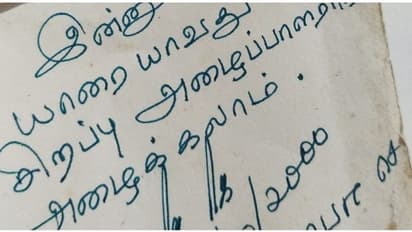 இன்னு
யாரையாவது
சிறப்பு அழைப்பாளரா
அழைக்கலாம்.
/2000